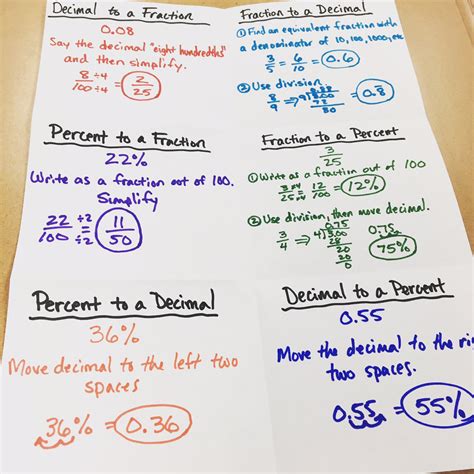 Decimal to a Fraction
0.08
Say the decimal "eight hundredths"
and then simplify.
8 ÷4
100 ÷4 = 2/25
Fraction to a Decimal
① Find an equivalent fraction with
a denominator of 10, 100, 1000, etc.
3/5 = 6/10 = 0.6
② Use division.
8/9 → 9 8.00 = 0.8
72
80
Percent to a Fraction
22%
Write as a fraction out of 100.
Simplify
22 ÷2
100 ÷2 = 11/50
Fraction to a Percent
3/25
① Write as a fraction out of 100
3/25 = 12/100 = 12%
② Use division, then move decimal.
0.75
3/4 → 4 3.00 0.75
28
20 75%
20
0
Percent to a Decimal
36%
Move decimal to the left two
spaces
36% = 0.36
Decimal to a Percent
0.55
Move the decimal to the
two spaces.
0.55 = 55%